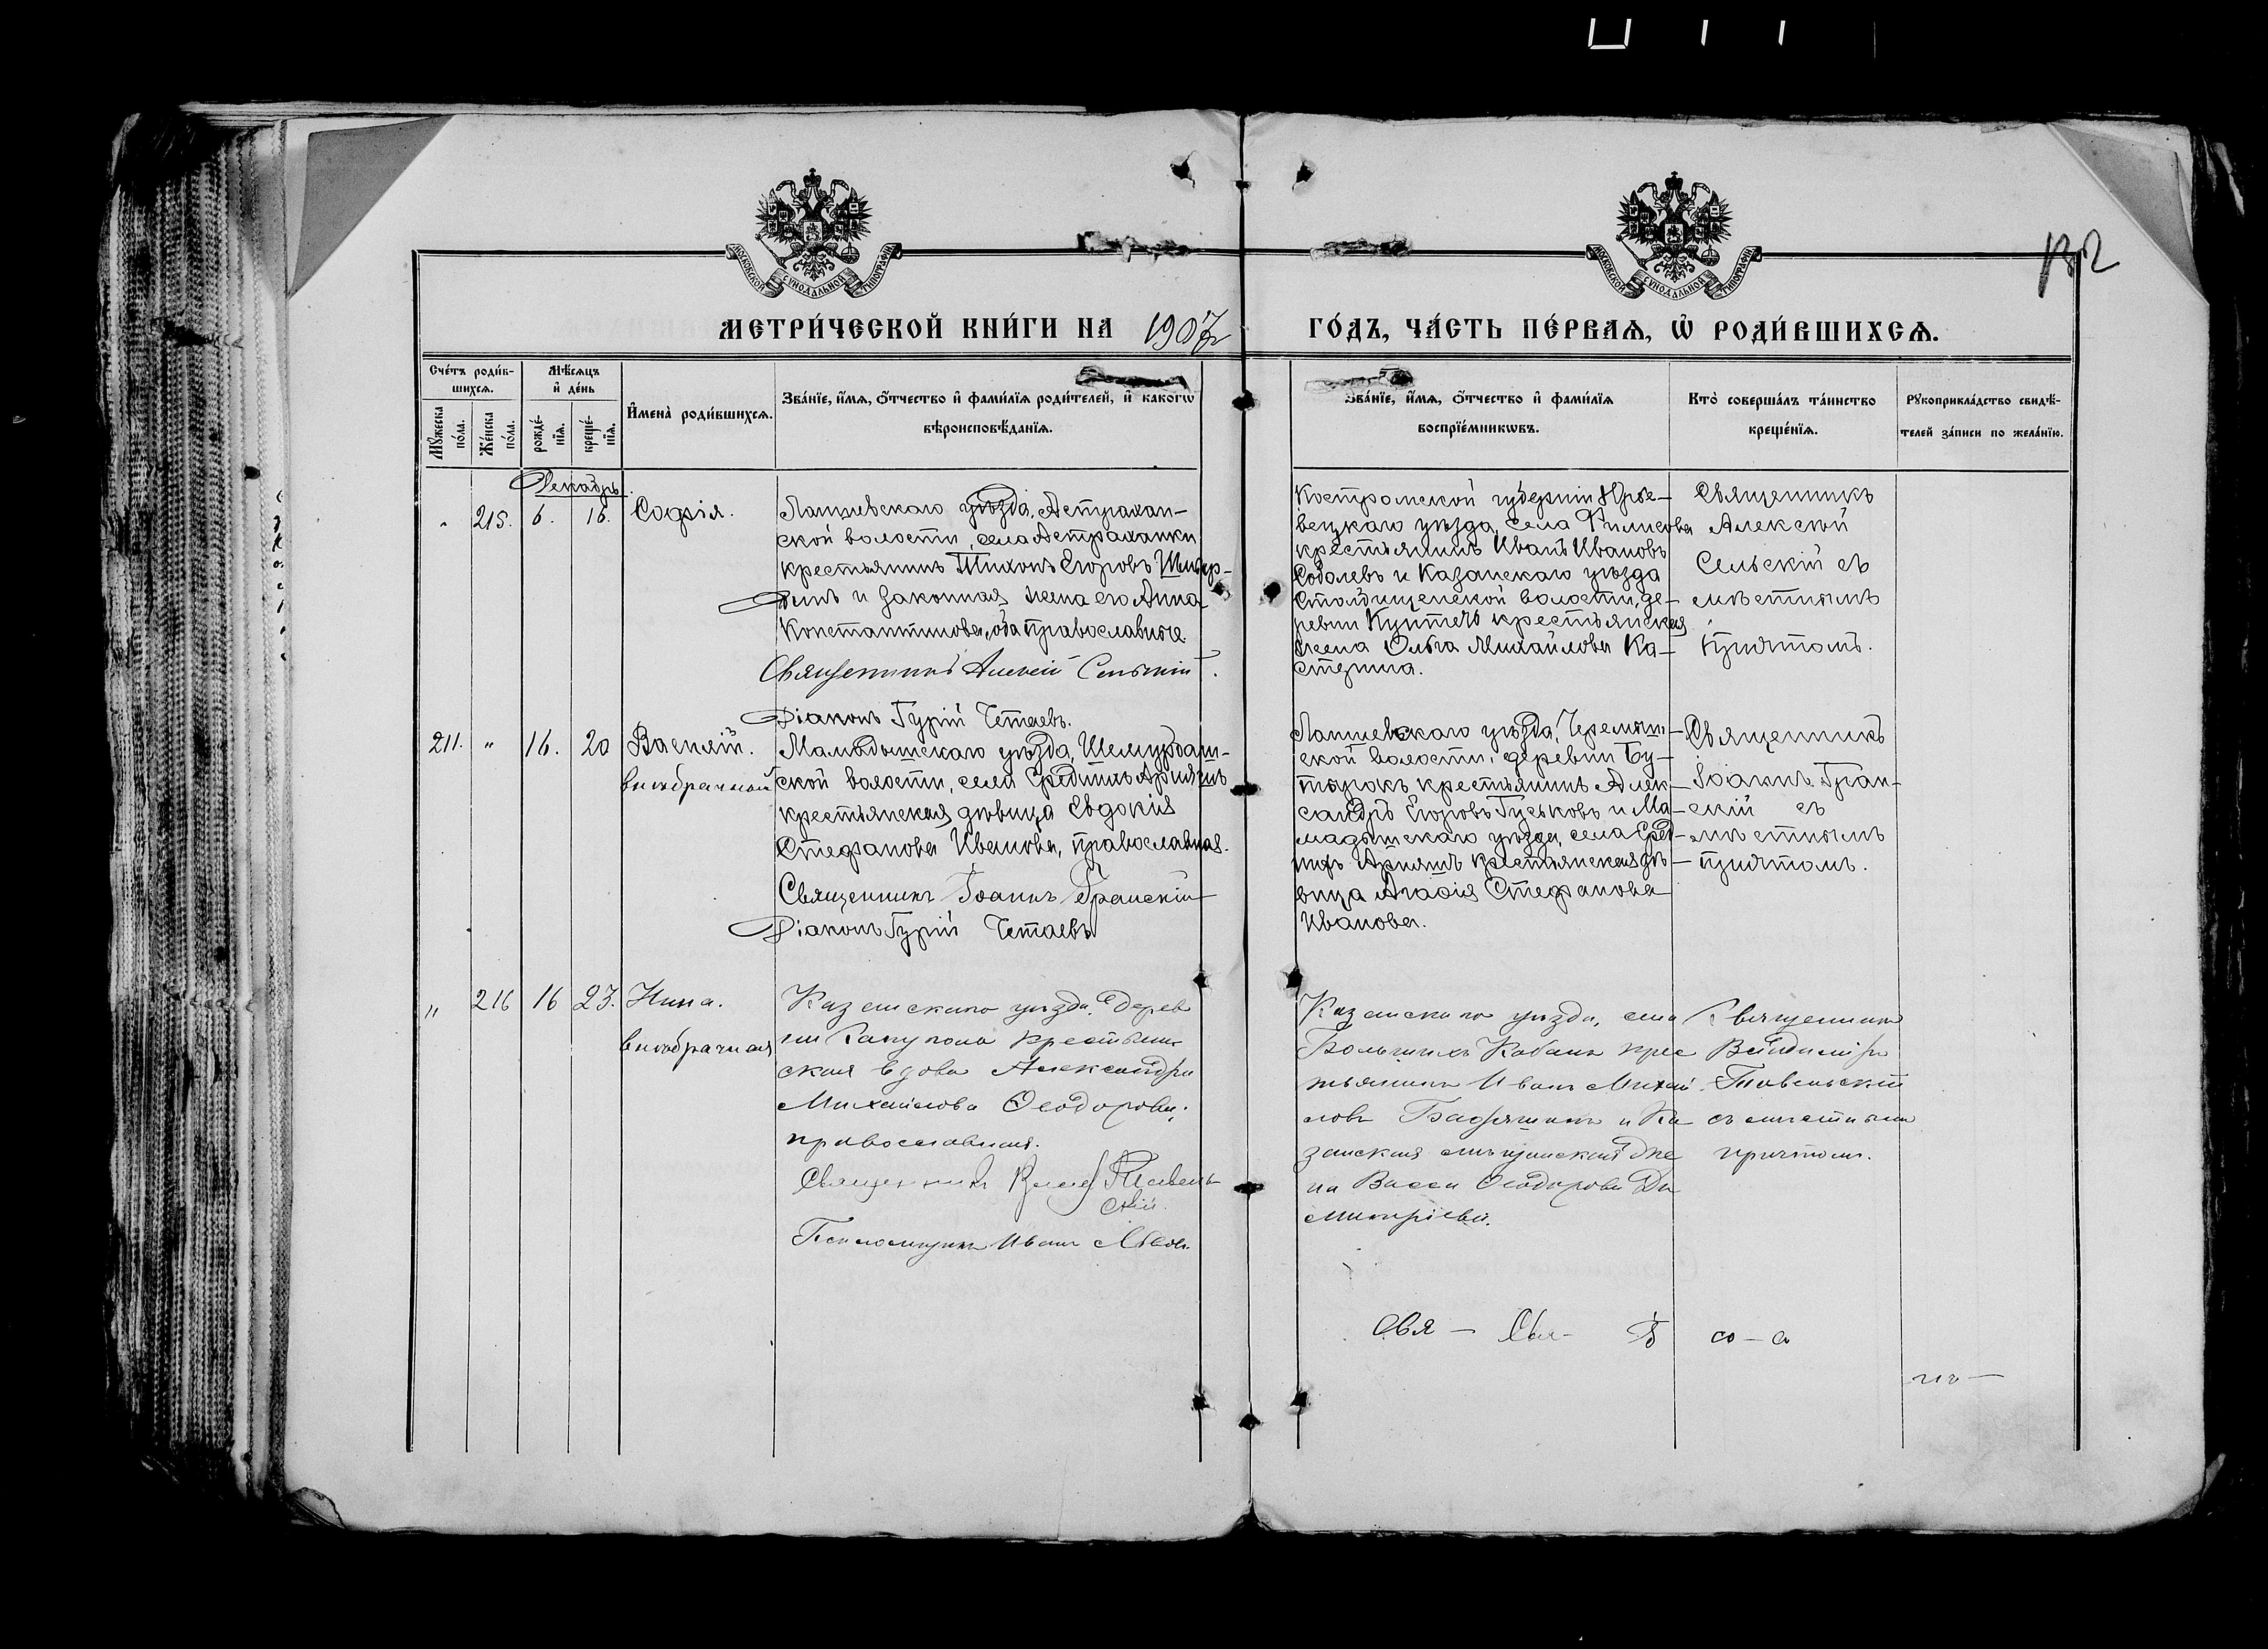 132
МОСКОВСКОЙ СУНОДАЛЬНОЙ ТИПОГРАФІИ
МОСКОВСКОЙ СУНОДАЛЬНОЙ ТИПОГРАФІИ
МЕТРИ́ЧЕСКОЙ КНИ́ГИ НА 1907
ГО́ДЪ, ЧА́СТЬ ПЕ́РВАѦ, Ѡ҆ РОДИ́ВШИХСѦ.
Сче́тъ роди́в-
шихсѧ.
Мѣ́сѧцъ
и҆ де́нь
Мꙋ́жеска
по́ла.
Же́нска
по́ла.
рожде́-
нїѧ.
креще́-
нїѧ.
И҆мена̀ роди́вшихсѧ.
Зва́нїе, и҆́мѧ, ѻ҆́тчество и҆ фами́лїѧ роди́телей, и҆ какогѡ
вѣроисповѣ́данїѧ.
Зва́нїе, и҆́мѧ, ѻ҆́тчество и҆ фами́лїѧ
воспрїе́мникѡвъ.
Кто̀ соверша́лъ та́инство
креще́нїѧ.
Рꙋкоприкла́дство свидѣ́-
телей за́писи по жела́нїю.
Декабрь.
215. 6. 16. Софія.
Лаишевскаго уѣзда, Астрахан-
ской волости, села Астраханки
крестьянинъ Тихонъ Егоровъ
и законная жена его Анна
Константинова, оба православные.
Священникъ Алексій Сельскій.
Діаконъ Гурій Четаевъ.
Костромской губерніи Юрье-
вецкаго уѣзда, села Филисова
крестьянинъ Иванъ Ивановъ
Соболевъ и Казанскаго уѣзда
Столбищенской волости, де-
ревни крестьянская
жена Ольга Михайлова Ка-
стерина.
Священникъ
Алексѣй
Сельскій съ
мѣстнымъ
причтомъ.
211. " 16. 20 Василій.
внѣбрачный
Мамадышскаго уѣзда, Шемурбаш-
ской волости, села Среднихъ Арняшъ
крестьянская дѣвица Евдокія
Стефанова Иванова, православная.
Священникъ Іоаннъ Гранскій
Діаконъ Гурій Четаевъ
Лаишевскаго уѣзда, Черемыш-
ской волости, деревни Бу-
тырокъ крестьянинъ Алек-
сандръ Егоровъ Гуськовъ и Ма-
мадышскаго уѣзда, села Сред-
нихъ Арняшъ крестьянская дѣ-
вица Агафія Стефанова
Иванова.
Священникъ
Іоаннъ Гран-
скій съ
мѣстнымъ
причтомъ.
" 216 16 23. Нина.
внѣбрачная
Казанскаго уѣзда, дерев
ни крестьян
ская вдова Александра
Михайлова Ѳеодорова,
православная.
Священникъ
скій.
Псаломщикъ Иванъ Львовъ.
Казанскаго уѣзда, села
Большихъ Кабанъ крес
тьянинъ Иванъ Михай
ловъ и Ка
занская мѣщанская же
на Васса Ѳеодорова Ди
митріева.
Священникъ
Владиміръ
Тавельскій
съ мѣстнымъ
причтомъ.
Свя — Свя —
со — а